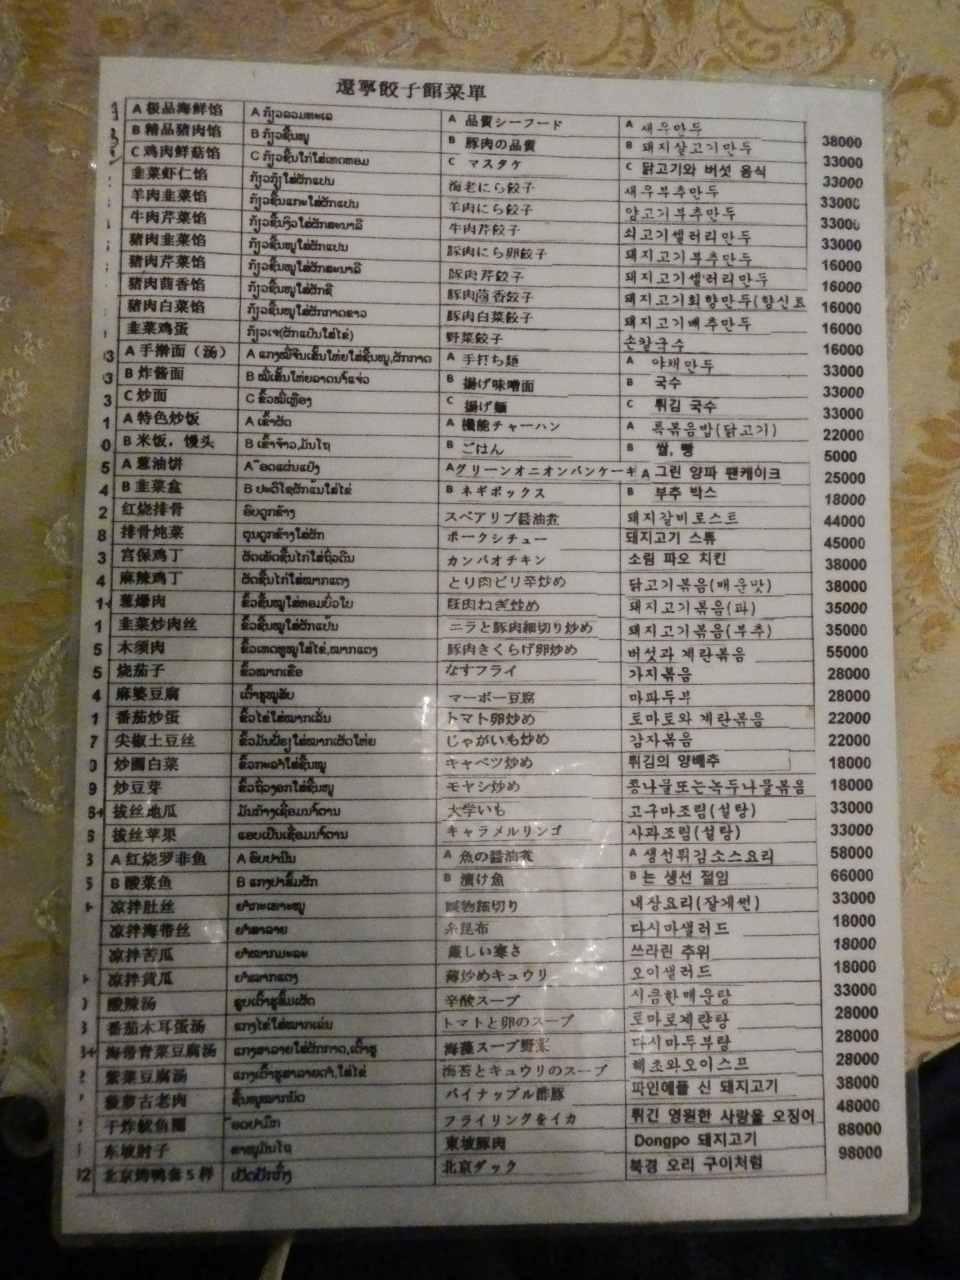 遼寧餃子館菜單
A 极品海鲜馅 A 品質シーフード A 새우만두 38000
B 精品猪肉馅 B 豚肉の品質 B 돼지살고기만두 33000
C 鸡肉鲜菇馅 C マスタケ C 닭고기와 버섯 음식 33000
韭菜虾仁馅 海老にら餃子 새우부추만두 33000
羊肉韭菜馅 羊肉にら餃子 양고기부추만두 33000
牛肉芹菜馅 牛肉芹餃子 쇠고기셀러리만두 33000
猪肉韭菜馅 豚肉にら卵餃子 돼지고기부추만두 16000
猪肉芹菜馅 豚肉芹餃子 돼지고기셀러리만두 16000
猪肉茴香馅 豚肉茴香餃子 돼지고기회향만두(향신료 16000
猪肉白菜馅 豚肉白菜餃子 돼지고기배추만두 16000
韭菜鸡蛋 野菜餃子 손칼국수 16000
3 A 手擀面（汤） A 手打ち麺 A 야채만두 33000
3 B 炸酱面 B 揚げ味噌面 B 국수 33000
3 C 炒面 C ຂົ້ວໝີ່ເຫຼືອງ C 揚げ麺 C 튀김 국수 33000
1 A 特色炒饭 A ເຂົ້າຜັດ A 機能チャーハン A 특볶음밥(닭고기) 22000
0 B 米饭，馒头 B ເຂົ້າຈ້າວ,ມັນໂຖ B ごはん B 쌀, 빵 5000
5 A 葱油饼 Aグリーンオニオンパンケーキ A 그린 양파 팬케이크 25000
4 B 韭菜盒 B ネギボックス B 부추 박스 18000
2 红烧排骨 ອົບດູກຂ້າງ スペアリブ醤油煮 돼지갈비로스트 44000
8 排骨炖菜 ຕຸນດູກຂ້າງໃສ່ຜັກ ポークシチュー 돼지고기 스튜 45000
3 宫保鸡丁 カンパオチキン 소림 파오 치킨 38000
4 麻辣鸡丁 ຜັດຊີ້ນໄກ່ໃສ່ໝາກແດງ とり肉ピリ辛炒め 닭고기볶음(매운맛) 38000
1+ 葱爆肉 豚肉ねぎ炒め 돼지고기볶음(파) 35000
1 韭菜炒肉丝 ニラと豚肉細切り炒め 돼지고기볶음(부추) 35000
5 木须肉 豚肉きくらげ卵炒め 버섯과 계란볶음 55000
5 烧茄子 ຂົ້ວໝາກເຂືອ なすフライ 가지볶음 28000
4 麻婆豆腐 マーボー豆腐 마파두부 28000
1 番茄炒蛋 ຂົ້ວໄຂ່ໃສ່ໝາກເລັ່ນ トマト卵炒め 토마토와 계란볶음 22000
7 尖椒土豆丝 じゃがいも炒め 감자볶음 22000
炒圆白菜 キャベツ炒め 튀김의 양배추 18000
9 炒豆芽 モヤシ炒め 콩나물또는녹두나물볶음 18000
6+ 拔丝地瓜 大学いも 고구마조림(설탕) 33000
6 拔丝苹果 キャラメルリンゴ 사과조림(설탕) 33000
3 A 红烧罗非鱼 A ອົບປານິນ A 魚の醤油煮 A 생선튀김소스요리 58000
5 B 酸菜鱼 B 漬け魚 B 는 생선 절임 66000
凉拌肚丝 ຍຳກະເພາະໝູ 臓物細切り 내장요리(잘게썬) 33000
凉拌海带丝 糸昆布 다시마샐러드 18000
凉拌苦瓜 ຍຳໝາກມະລະ 厳しい寒さ 쓰라린 추위 18000
凉拌黄瓜 ຍຳໝາກແຕງ 薄炒めキュウリ 오이샐러드 18000
酸辣汤 辛酸スープ 시큼한매운탕 33000
番茄木耳蛋汤 ແກງໄຂ່ໃສ່ໝາກເລັ່ນ トマトと卵のスープ 토마로계란탕 28000
海带青菜豆腐汤 海藻スープ野菜 다시마두부탕 28000
紫菜豆腐汤 海苔とキュウリのスープ 해초와오이스프 28000
菠萝古老肉 パイナップル酢豚 파인애플 신 돼지고기 38000
干炸鱿鱼圈 フライリングをイカ 튀긴 영원한 사랑을 오징어 48000
东坡肘子 東坡豚肉 Dongpo 돼지고기 88000
北京烤鸭套5样 ເປັດປັກກິ່ງ 北京ダック 북경 오리 구이처럼 98000